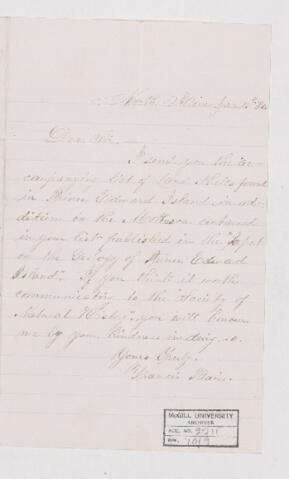 North River Jan 15th
Dear Sir
I send you the ac-
companying list of Land Shells found
in Prince Edward Island in ad-
dition to the Mollusca contained
in your list published in the "Report
on the Geology of Prince Edward
Island". If you think it worth
communicating to the Society of
Natural History you will honour
me by your kindness in doing so.
Yours truly
Francis Bain.
McGILL UNIVERSITY
ARCHIVES
ACC. NO. 2211
REF.